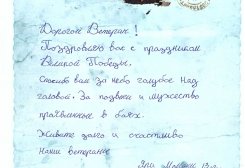 Дорогой Ветеран!
Поздравляю вас с праздником
Великой Победы.
Спасибо вам за небо голубое над
головой. За подвиги и мужество
проявленные в боях.
Живите долго и счастливо
наши ветераны